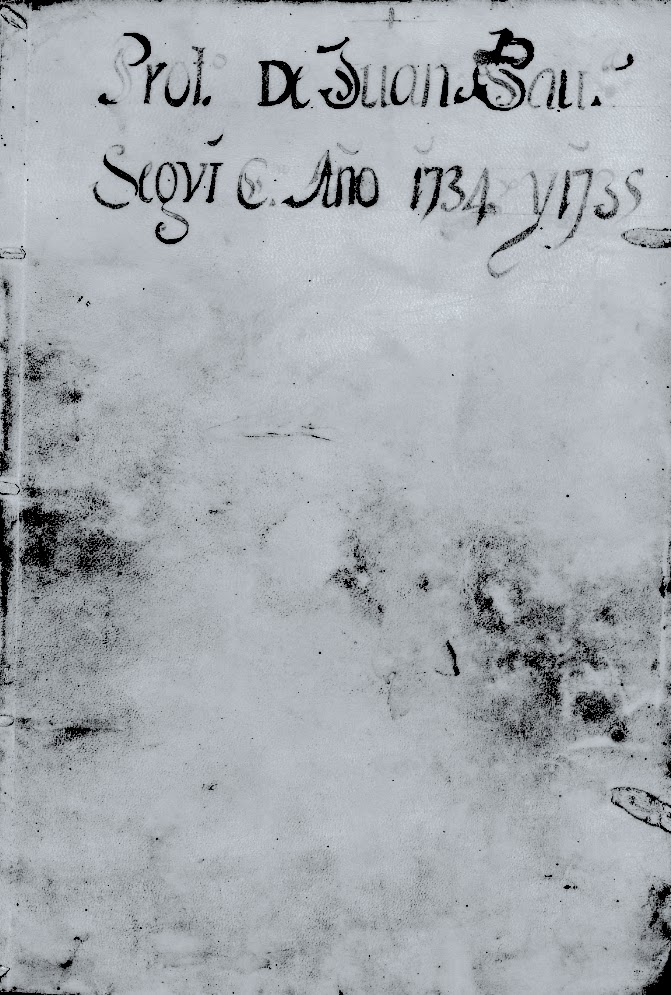 Prot. De Juan Bau.ᵗᵃ
Seguí E. Año 1734. y 1735